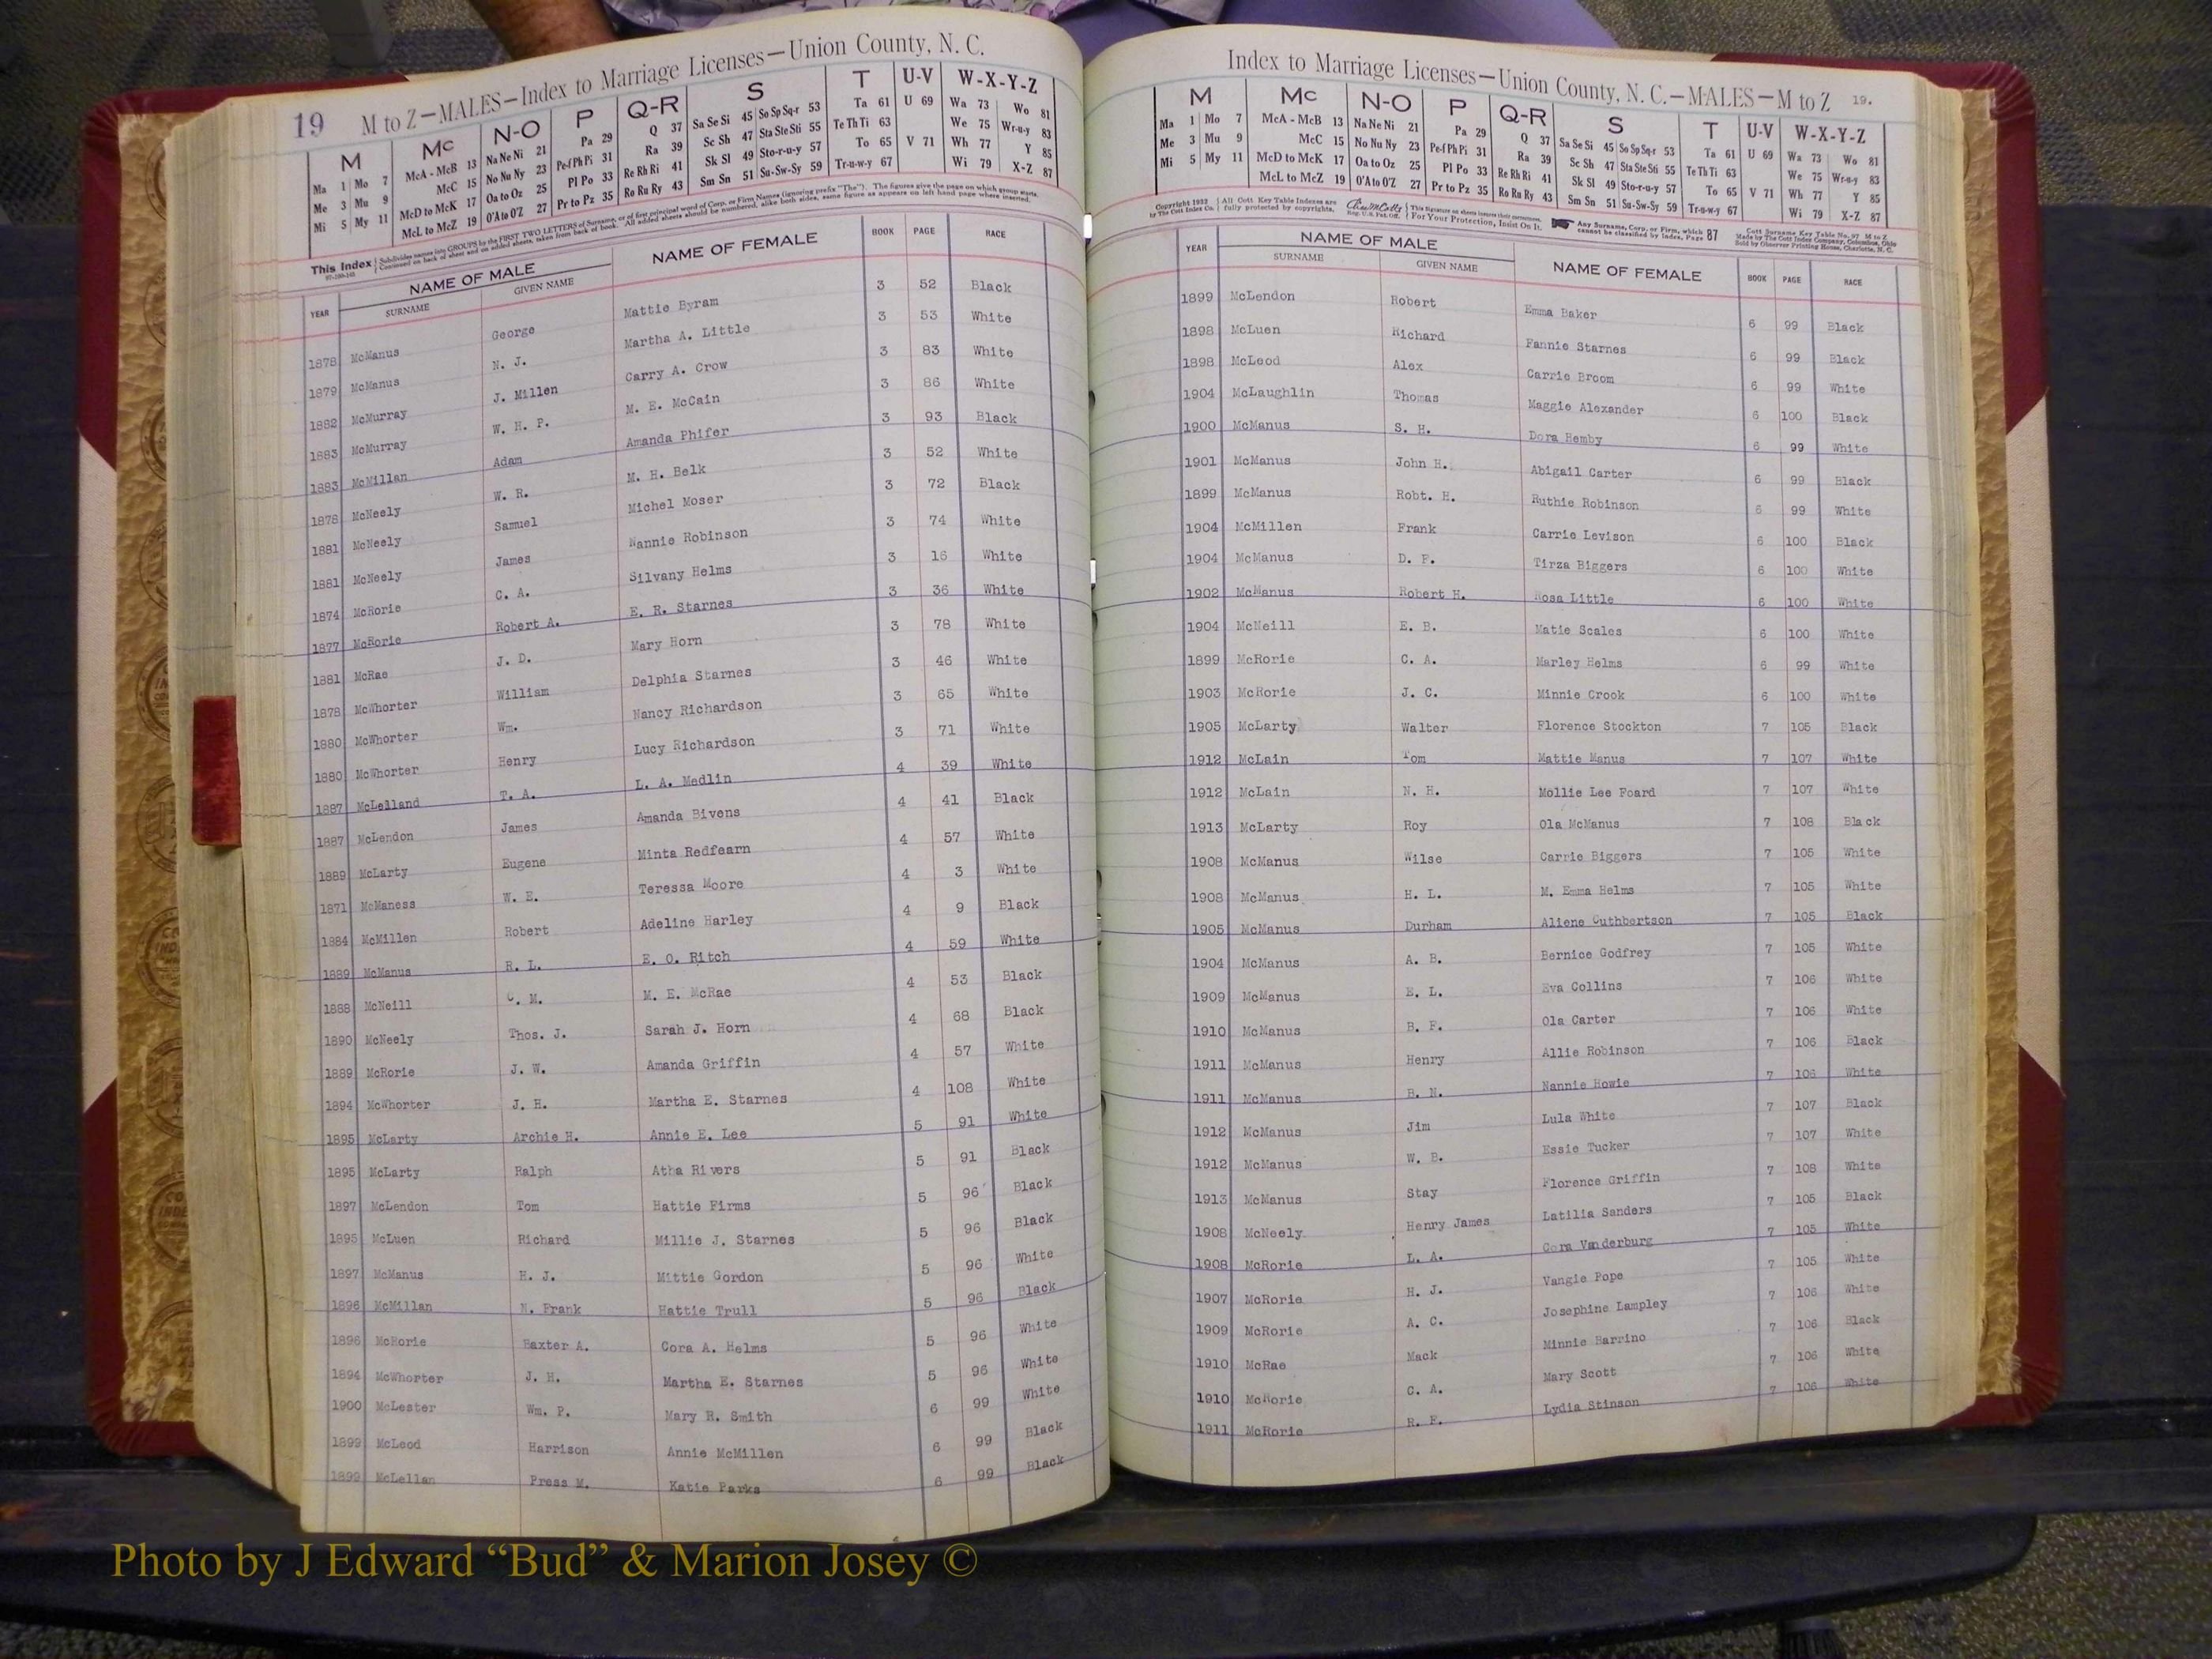 19 M to Z—MALES—Index to Marriage Licenses—Union County, N. C.
M Mc N-O P Q-R S T U-V W-X-Y-Z
Ma 1 Mo 7 McA - McB 13 Na Ne Ni 21 Pa 29 Q 37 Sa Se Si 45 So Sp Sq-r 53 Ta 61 U 69 Wa 73 Wo 81
Me 3 Mu 9 McC 15 No Nu Ny 23 Pe-f Ph Pi 31 Ra 39 Sc Sh 47 Sta Ste Sti 55 Te Th Ti 63 We 75 Wr-u-y 83
Mi 5 My 11 McD to McK 17 Oa to Oz 25 Pl Po 33 Re Rh Ri 41 Sk Sl 49 Sto-r-u-y 57 To 65 V 71 Wh 77 Y 85
McL to McZ 19 O'A to O'Z 27 Pr to Pz 35 Ro Ru Ry 43 Sm Sn 51 Su-Sw-Sy 59 Tr-u-w-y 67 Wi 79 X-Z 87
This Index Subdivides names into GROUPS by the FIRST TWO LETTERS of Surname, or of first principal word of Corp. or Firm Names (ignoring prefix "The"). The figures give the page on which group starts.
Continued on back of sheet and on added sheets, taken from back of book. All added sheets should be numbered, alike both sides, same figure as appears on left hand page where inserted.
YEAR NAME OF MALE SURNAME GIVEN NAME NAME OF FEMALE BOOK PAGE RACE
1878 McManus George Mattie Byram 3 52 Black
1879 McManus N. J. Martha A. Little 3 53 White
1882 McMurray J. Millen Carry A. Crow 3 83 White
1883 McMurray W. H. P. M. E. McCain 3 86 White
1883 McMillan Adam Amanda Phifer 3 93 Black
1878 McNeely W. R. M. H. Belk 3 52 White
1881 McNeely Samuel Michel Moser 3 72 Black
1881 McNeely James Nannie Robinson 3 74 White
1874 McRorie C. A. Silvany Helms 3 16 White
1877 McRorie Robert A. E. R. Starnes 3 36 White
1881 McRae J. D. Mary Horn 3 78 White
1878 McWhorter William Delphia Starnes 3 46 White
1880 McWhorter Wm. Nancy Richardson 3 65 White
1880 McWhorter Henry Lucy Richardson 3 71 White
1887 McLelland T. A. L. A. Medlin 4 39 White
1887 McLendon James Amanda Bivens 4 41 Black
1889 McLarty Eugene Minta Redfearn 4 57 White
1871 McManess W. E. Teressa Moore 4 3 White
1884 McMillen Robert Adeline Harley 4 9 Black
1889 McManus R. L. E. O. Ritch 4 59 White
1888 McNeill C. M. M. E. McRae 4 53 Black
1890 McNeely Thos. J. Sarah J. Horn 4 68 Black
1889 McRorie J. W. Amanda Griffin 4 57 White
1894 McWhorter J. H. Martha E. Starnes 4 108 White
1895 McLarty Archie H. Annie E. Lee 5 91 White
1895 McLarty Ralph Atha Rivers 5 91 Black
1897 McLendon Tom Hattie Firms 5 96 Black
1895 McLuen Richard Millie J. Starnes 5 96 Black
1897 McManus H. J. Mittie Gordon 5 96 White
1896 McMillan N. Frank Hattie Trull 5 96 Black
1896 McRorie Baxter A. Cora A. Helms 5 96 White
1894 McWhorter J. H. Martha E. Starnes 5 96 White
1900 McLester Wm. P. Mary R. Smith 6 99 White
1899 McLeod Harrison Annie McMillen 6 99 Black
1899 McLellan Press M. Katie Parks 6 99 Black
Index to Marriage Licenses—Union County, N. C.—MALES—M to Z 19.
M Mc N-O P Q-R S T U-V W-X-Y-Z
Ma 1 Mo 7 McA - McB 13 Na Ne Ni 21 Pa 29 Q 37 Sa Se Si 45 So Sp Sq-r 53 Ta 61 U 69 Wa 73 Wo 81
Me 3 Mu 9 McC 15 No Nu Ny 23 Pe-f Ph Pi 31 Ra 39 Sc Sh 47 Sta Ste Sti 55 Te Th Ti 63 We 75 Wr-u-y 83
Mi 5 My 11 McD to McK 17 Oa to Oz 25 Pl Po 33 Re Rh Ri 41 Sk Sl 49 Sto-r-u-y 57 To 65 V 71 Wh 77 Y 85
McL to McZ 19 O'A to O'Z 27 Pr to Pz 35 Ro Ru Ry 43 Sm Sn 51 Su-Sw-Sy 59 Tr-u-w-y 67 Wi 79 X-Z 87
Copyright 1932 by The Cott Index Co. All Cott Key Table Indexes are fully protected by copyrights. For Your Protection, Insist On It. Any Surname, Corp. or Firm, which cannot be classified by Index, Page 87
Cott Surname Key Table No. 97 M to Z Made by The Cott Index Company, Columbus, Ohio Sold by Observer Printing House, Charlotte, N. C.
YEAR NAME OF MALE SURNAME GIVEN NAME NAME OF FEMALE BOOK PAGE RACE
1899 McLendon Robert Emma Baker 6 99 Black
1898 McLuen Richard Fannie Starnes 6 99 Black
1898 McLeod Alex Carrie Broom 6 99 White
1904 McLaughlin Thomas Maggie Alexander 6 100 Black
1900 McManus S. H. Dora Hemby 6 99 White
1901 McManus John H. Abigail Carter 6 99 Black
1899 McManus Robt. H. Ruthie Robinson 6 99 White
1904 McMillen Frank Carrie Levison 6 100 Black
1904 McManus D. F. Tirza Biggers 6 100 White
1902 McManus Robert H. Rosa Little 6 100 White
1904 McNeill E. B. Matie Scales 6 100 White
1899 McRorie C. A. Marley Helms 6 99 White
1903 McRorie J. C. Minnie Crook 6 100 White
1905 McLarty Walter Florence Stockton 7 105 Black
1912 McLain Tom Mattie Manus 7 107 White
1912 McLain N. H. Mollie Lee Foard 7 107 White
1913 McLarty Roy Ola McManus 7 108 Black
1908 McManus Wilse Carrie Biggers 7 105 White
1908 McManus H. L. M. Emma Helms 7 105 White
1905 McManus Durham Aliene Cuthbertson 7 105 Black
1904 McManus A. B. Bernice Godfrey 7 105 White
1909 McManus E. L. Eva Collins 7 106 White
1910 McManus B. F. Ola Carter 7 106 White
1911 McManus Henry Allie Robinson 7 106 Black
1911 McManus B. N. Nannie Howie 7 106 White
1912 McManus Jim Lula White 7 107 Black
1912 McManus W. B. Essie Tucker 7 107 White
1913 McManus Stay Florence Griffin 7 108 White
1908 McNeely Henry James Latilia Sanders 7 105 Black
1908 McRorie L. A. Cora Vanderburg 7 105 White
1907 McRorie H. J. Vangie Pope 7 105 White
1909 McRorie A. C. Josephine Lampley 7 106 White
1910 McRae Mack Minnie Barrino 7 106 Black
1910 McRorie C. A. Mary Scott 7 106 White
1911 McRorie R. F. Lydia Stinson 7 106 White
Photo by J Edward “Bud” & Marion Josey ©